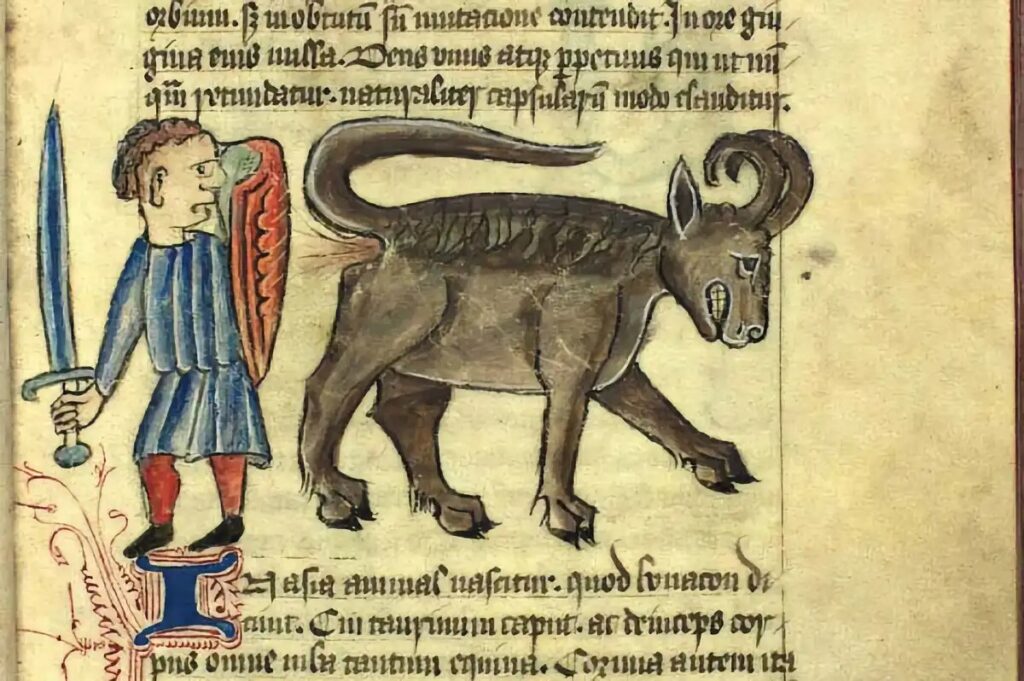 orbium. Sꝫ in obtutū sn̄ mutacione contendit. In ore gin
giua eius nulla. Dens unus atqꝫ ꝑpetuus qui ut nū
qm̄ retundatur. naturaliter capsularū modo clauditur.
IN asia animal nascitur. quod bonacon di
cunt. Cui taurinum caput. ac deinceps cor
pus omne iuba tantum equina. Cornua autem ita